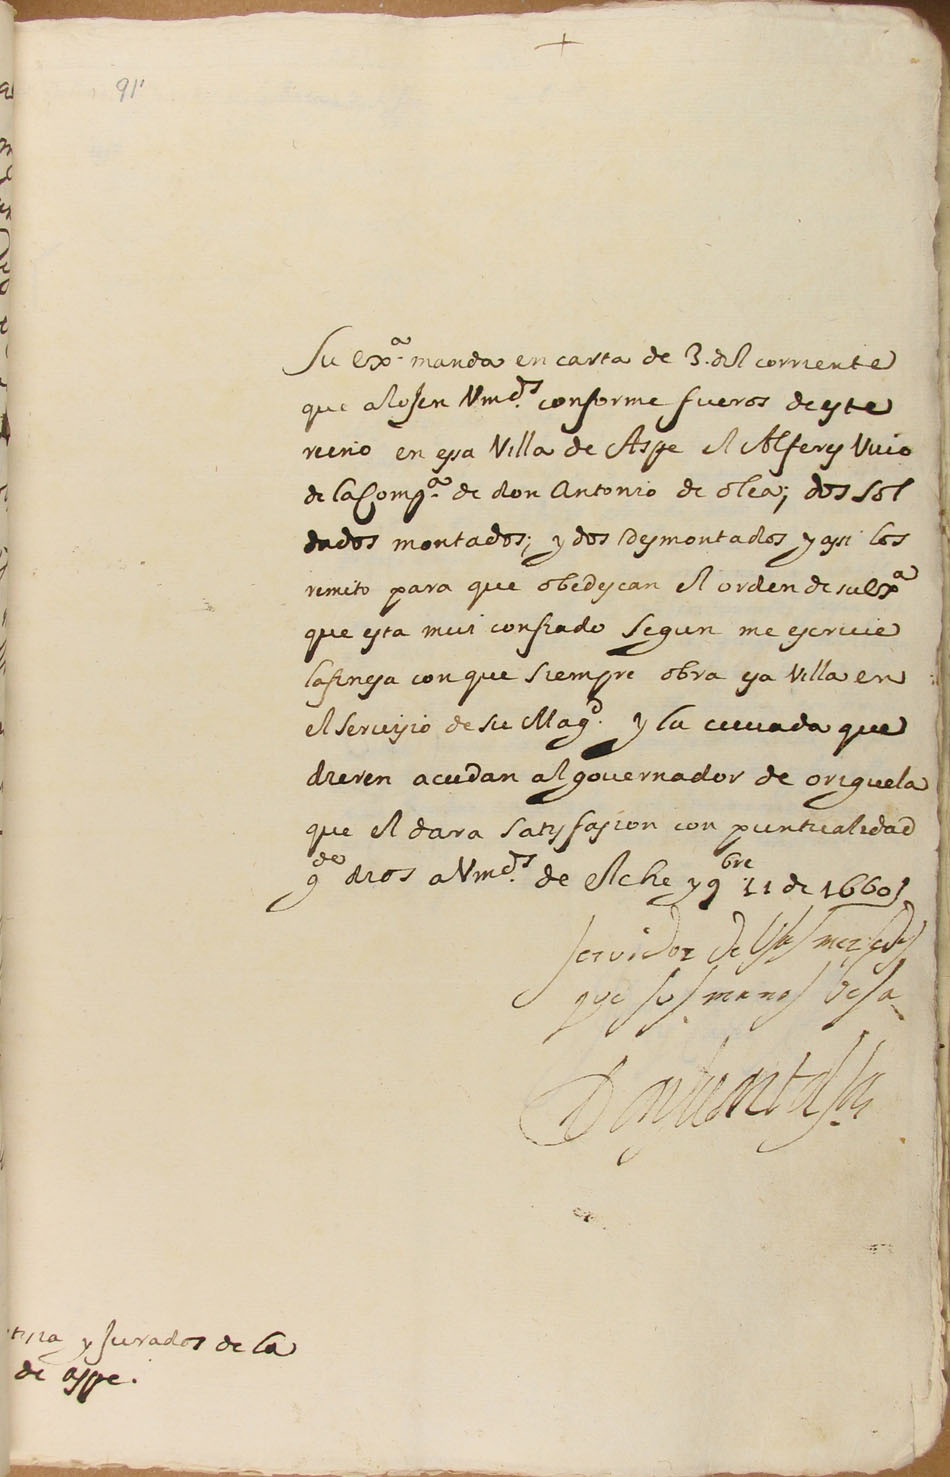 +
91
Su exª manda en carta de 3. del corriente
que alojen Vmds. conforme fueros deste
reino en esa Villa de Aspe el Alferes Vivo
de la Compª de don Antonio de olea; dos sol
dados montados; y dos desmontados y asi los
remito para que obedescan el orden de su exª
que esta mui confiado segun me escrive
la finesa con que siempre obra esa Villa en
el servisio de su Magd. y la cevada que
dieren acudan al governador de origuela
que el dara satisfasion con puntualidad
gde dios a Vmds. de elche y 9bre 11 de 1660
servidor de Vsas mersedes
que sus manos besa
tisia y Jurados de la
de aspe.